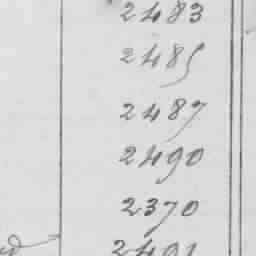 2483
2485
2487
2490
2370
2491